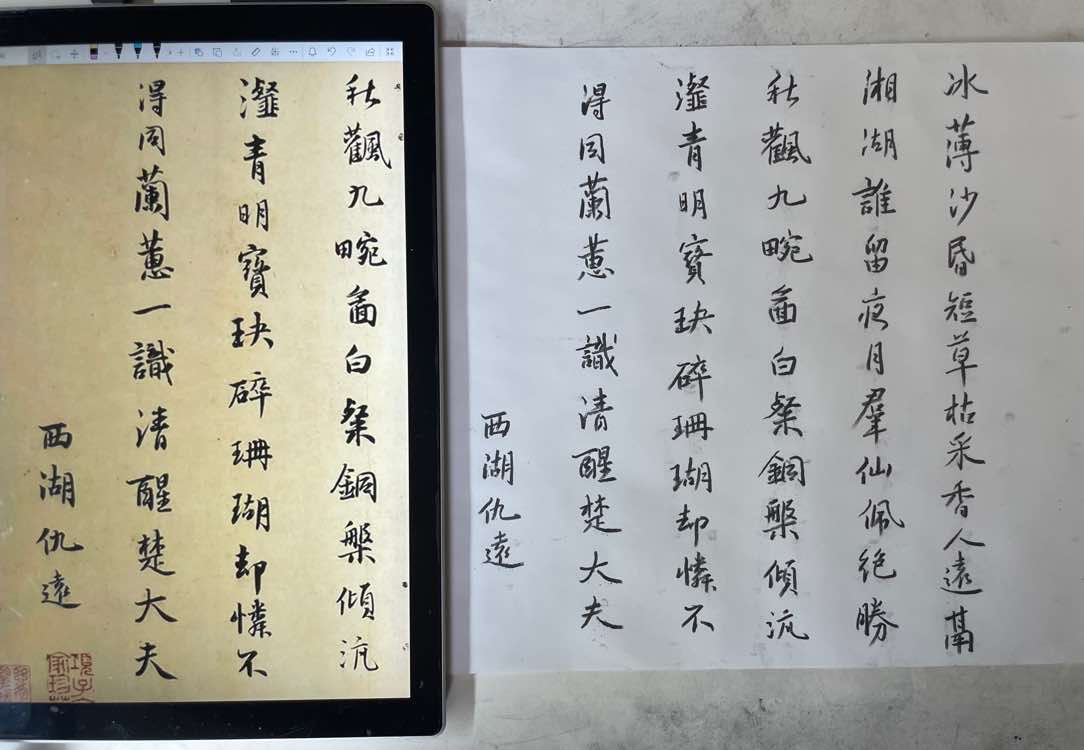 秋飌九畹啚白粲銅槃傾沆
瀣青明寶玦碎珊瑚却憐不
得同蘭蕙一識清醒楚大夫
西湖仇遠
冰薄沙昏短草枯采香人遠鬲
湘湖誰留夜月羣仙佩絕勝
秋飌九畹啚白粲銅槃傾沆
瀣青明寶玦碎珊瑚却憐不
得同蘭蕙一識清醒楚大夫
西湖仇遠